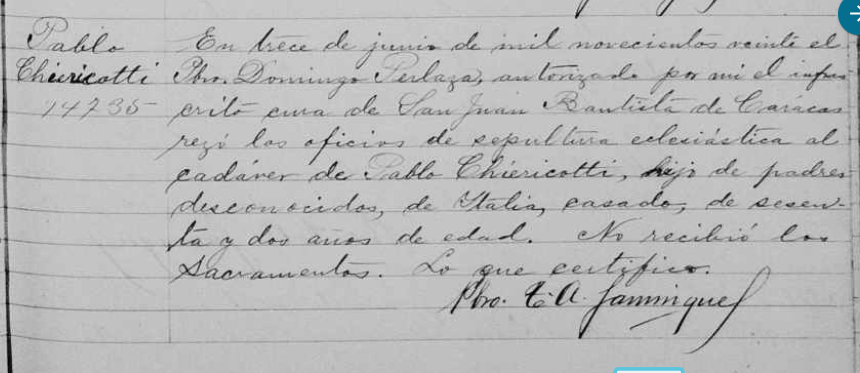 Pablo
Chiericotti
14735
En trece de junio de mil novecientos veinte el
Pbro. Domingo Perlaza, autorizado por mi el infras
crito cura de San Juan Bautista de Carácas
rezó los oficios de sepultura eclesiástica al
cadáver de Pablo Chiericotti, hijo de padres
desconocidos, de Italia, casado, de sesen-
ta y dos años de edad. No recibió los
Sacramentos. Lo que certifico.
Pbro.